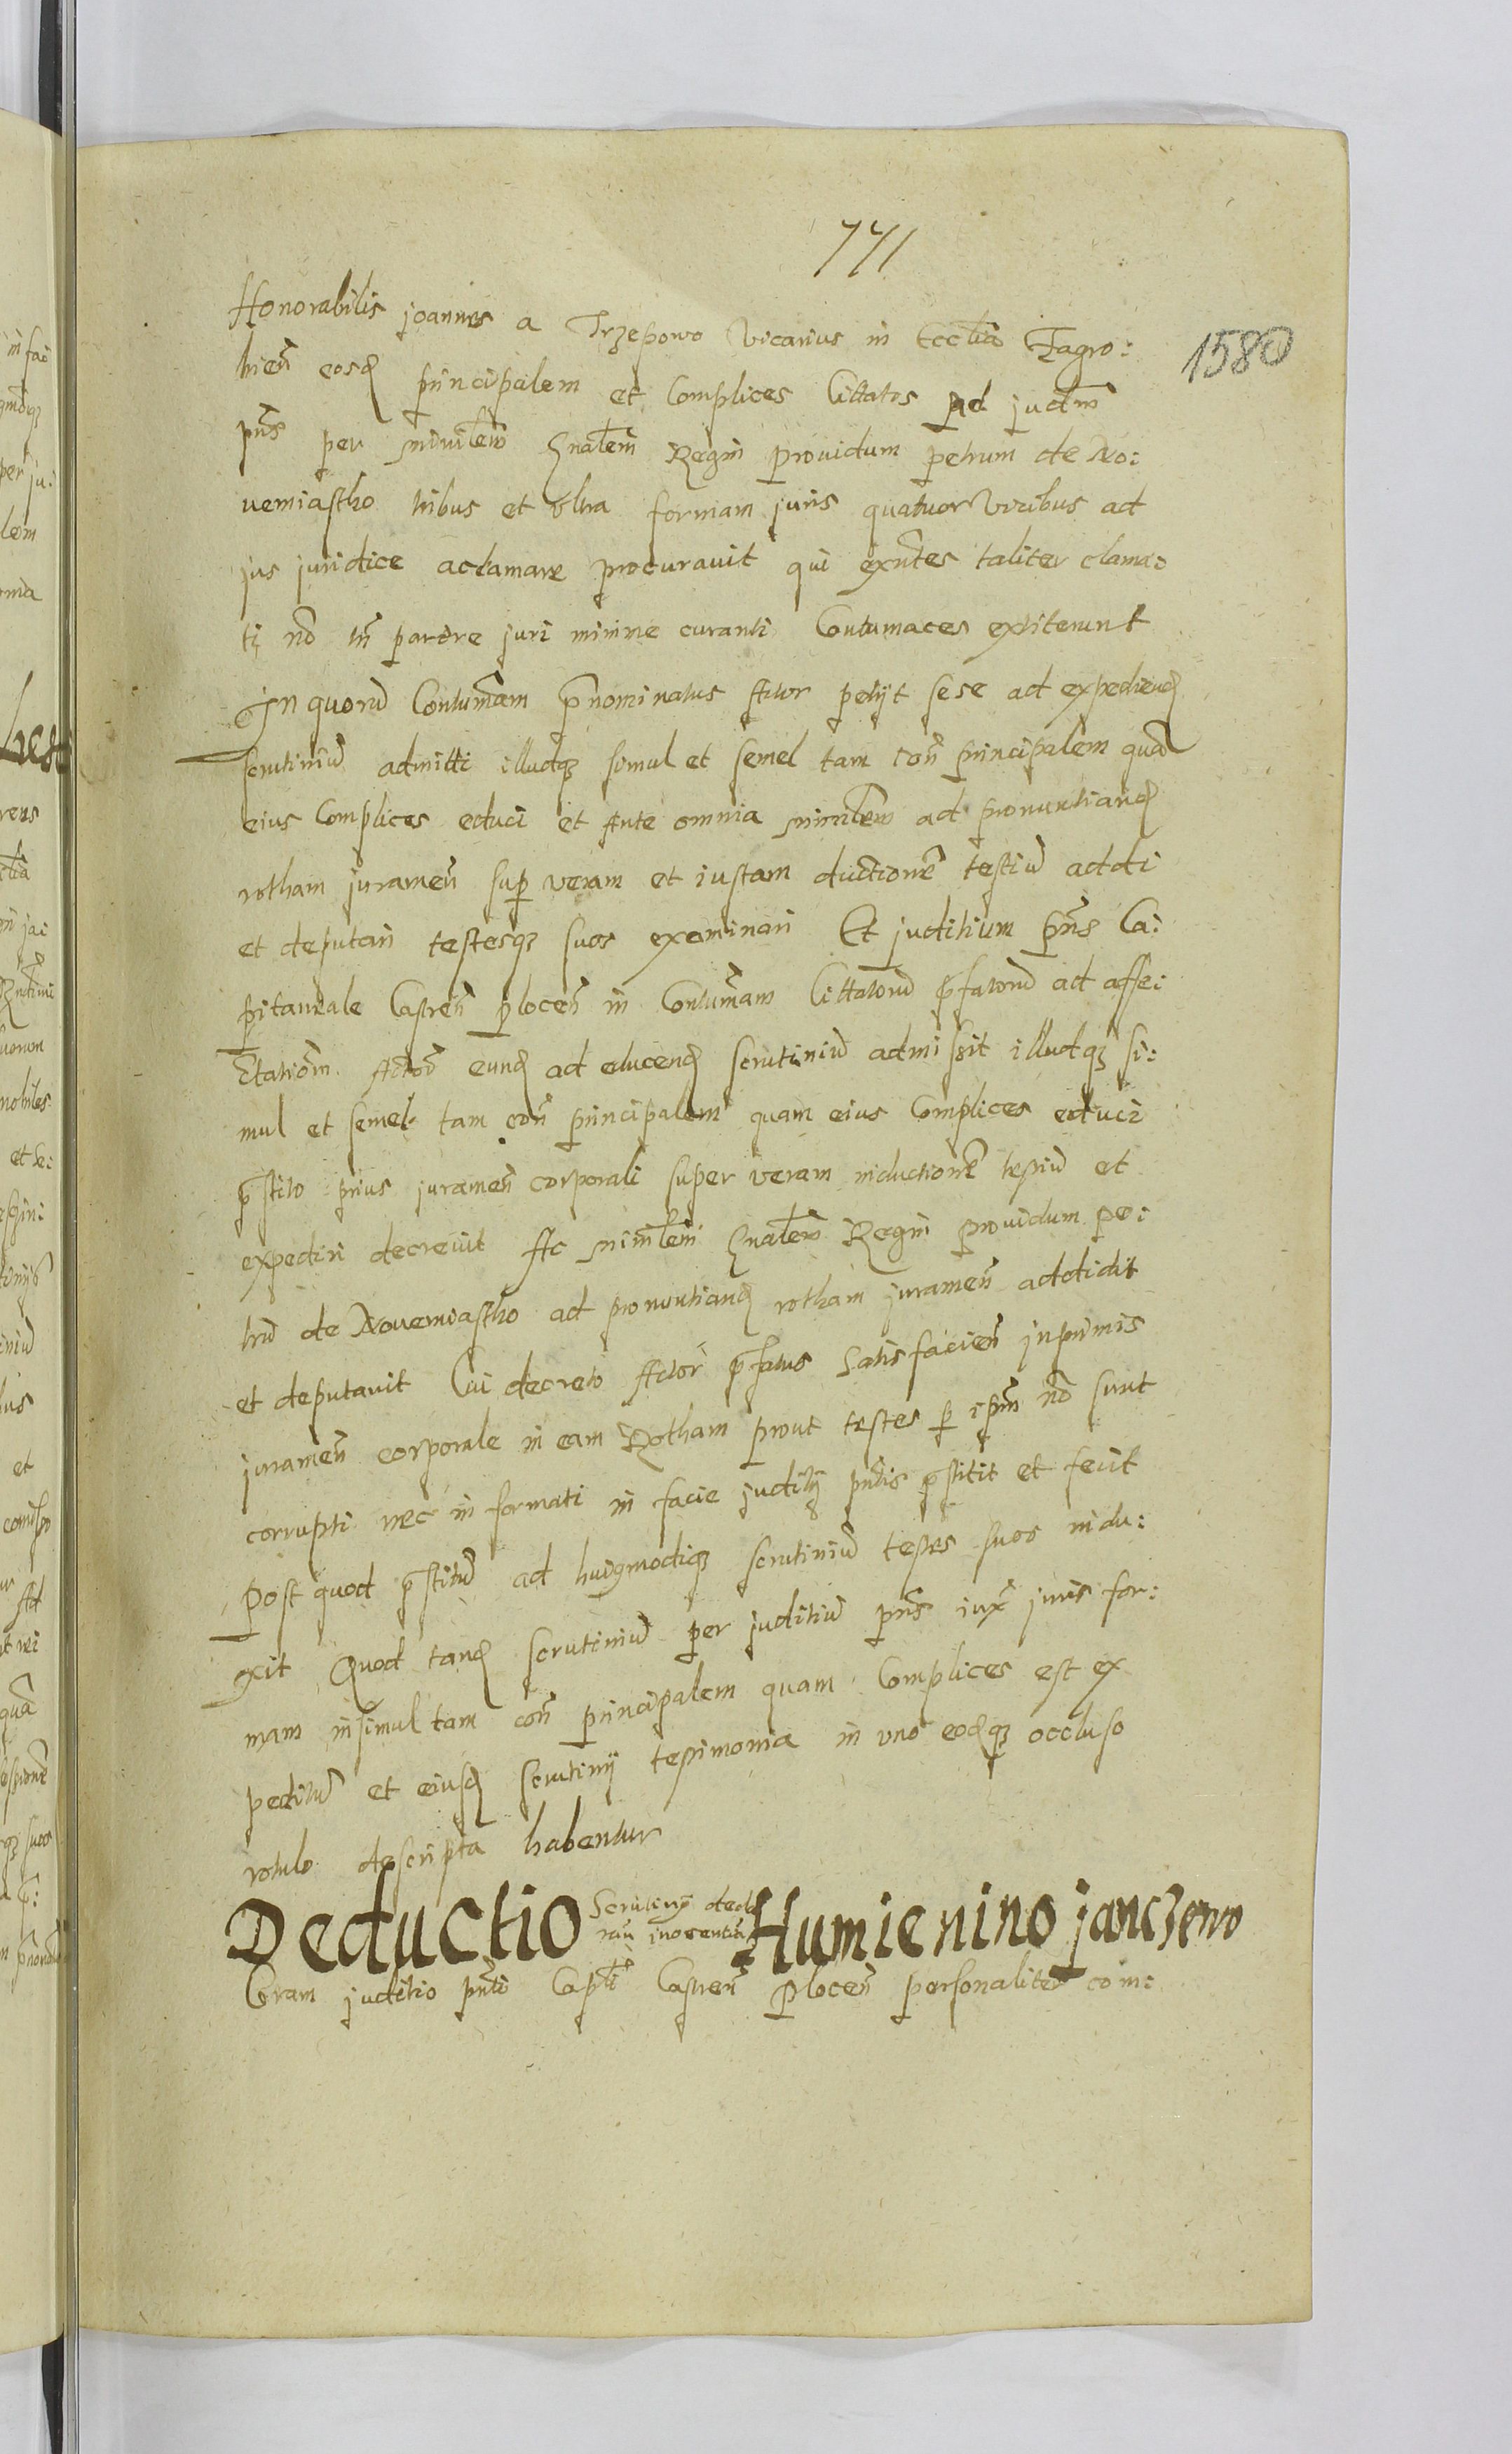 771
1580
Honorabilis joannes a Trzepowo Vicarius in Ecclia Zagro:
bien eosd principalem et Complices Cittatos ad judm
pns per minilem Gnalem Regni providum petrum de No:
uemiastho tribus et vltra formam juris quatuor Viribus ad
jus juridice aclamare procurauit qui exntes taliter clama:
ti no tn parere juri minime curanti Contumaces extiterunt
In quoru Contumam pnominatus Actor petijt sese ad expediend
scrutiniu admitti illudqz simul et semel tam con principalem qua
eius Complices educi et Ante omnia minilem ad pronuntiand
rotham juramen sup veram et iustam ductione testiu addi
et deputari testesqz suos examinari Et juditium pns Ca:
pitaneale Castren plocen in Contumam Cittatoru pfatoru ad affe:
ctationm Actor eund ad educend scrutiniu admissit illudqz si:
mul et semel tam con principalem quam eius Complices educi
pstito prius juramen corporali super veram inductione testiu et
expediri decreuit Ac minilem Gnalem Regni providum pe:
tru de Nouemiastho ad pronuntiand rotham juramen addidit
et deputauit Cui decreto Actor pfatus satisfacien inprimis
juramen corporale in eam Rotham prout testes p ipm no sunt
corrupti nec informati in facie juditij pntis pstitit et fecit
Post quod pstitu ad huiusmodiqz scrutiniu testes suos indu:
xit Quod tand scrutiniu per juditiu pns iux juris for:
mam insimul tam con principalem quam Complices est ex
peditu et eiusd scrutinij testimonia in vno eodqz occluso
rotulo descripta habentur
Deductio Scrutinij decla
ran inocentia Humienino janczewo
Coram juditio pnti Capli Castren Plocen personaliter com: